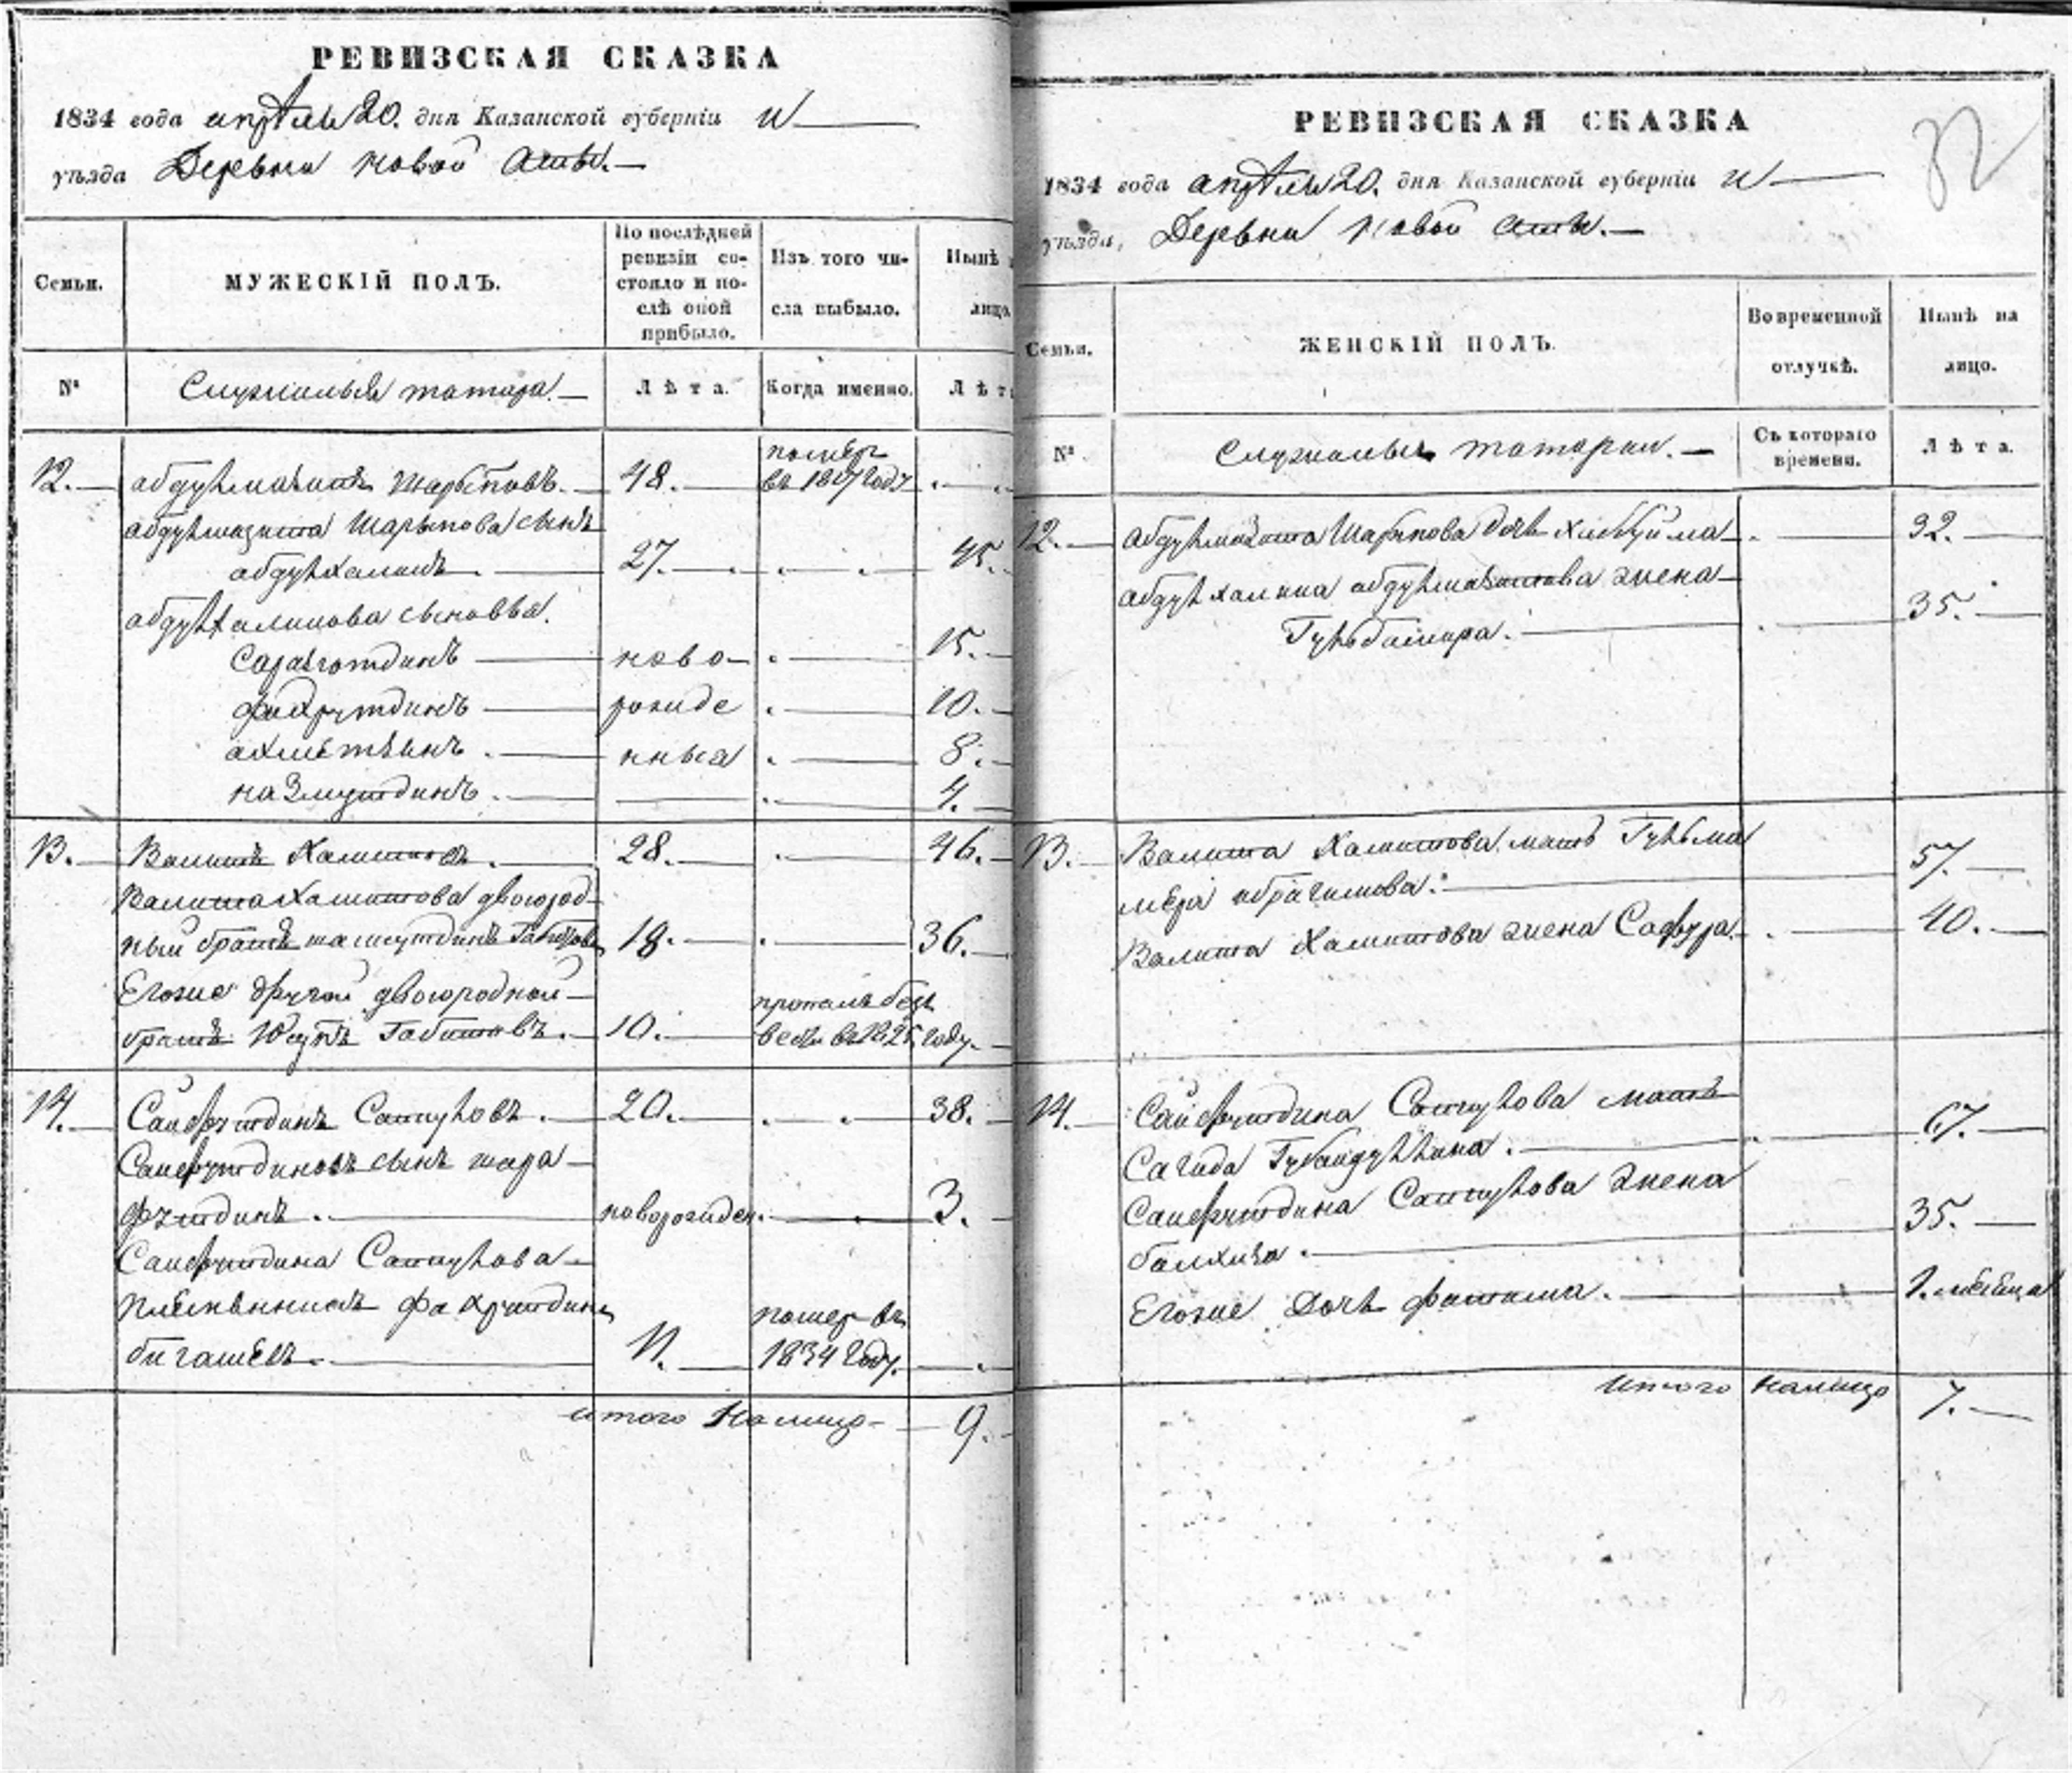 РЕВИЗСКАЯ СКАЗКА
1834 года апреля 20. дня Казанской губерніи и
уѣзда Деревни новой Ашы.
Семьи.
МУЖЕСКІЙ ПОЛЪ.
По послѣдней ревизіи состояло и послѣ оной прибыло.
Изъ того числа выбыло.
Нынѣ
лицо
№
Служилыя татара.
Лѣта.
Когда именно.
Лѣт
12. Абдулмазитъ Шарыповъ. 48. помѣр
въ году
Абдулмазита Шарыпова сынъ
абдулхаликъ. 27. 45.
абдулхаликова сыновья.
ново- 15.
фахрутдинъ рожде 10.
ахметзянъ нныя 8.
назмутдинъ. 4.
13. Валитъ Халитовъ. 28. 46.
Валита Халитова двоюрод-
ный братъ Габитовъ 18. 36.
Егоже другой двоюродной пропалъ безъ
братъ Юсупъ Габитовъ. 10. вести въ 1825 году.
14. Сайфутдинъ Сатуковъ. 20. 38.
Сайфутдиновъ сынъ шара-
футдинъ. новорожден. 3.
Сайфутдина Сатукова
племянникъ Фахрутдинъ помер въ
бигашевъ. 11. 1834 году.
итого Налицо 9.
РЕВИЗСКАЯ СКАЗКА
32
1834 года апреля 20. дня Казанской губерніи и
уѣзда, Деревни новой Ашы.
Семьи.
ЖЕНСКІЙ ПОЛЪ.
Во временной отлучкѣ.
Нынѣ на лицо.
№
Служилыя татарки.
Съ котораго времени.
Лѣта.
12. Абдулмазита Шарыпова дочь 32.
абдулхалика абдулмазитова жена
Гульбамира. 35.
13. Валита Халитова мать Гульма
ибрагимова. 57.
Валита Халитова жена Сафура. 40.
14. Сайфутдина Сатукова мать
Сагида Губайдуллина. 67.
Сайфутдина Сатукова жена
балхия. 35.
Егоже дочь фатима. 1. месеца
Итого налицо 7.